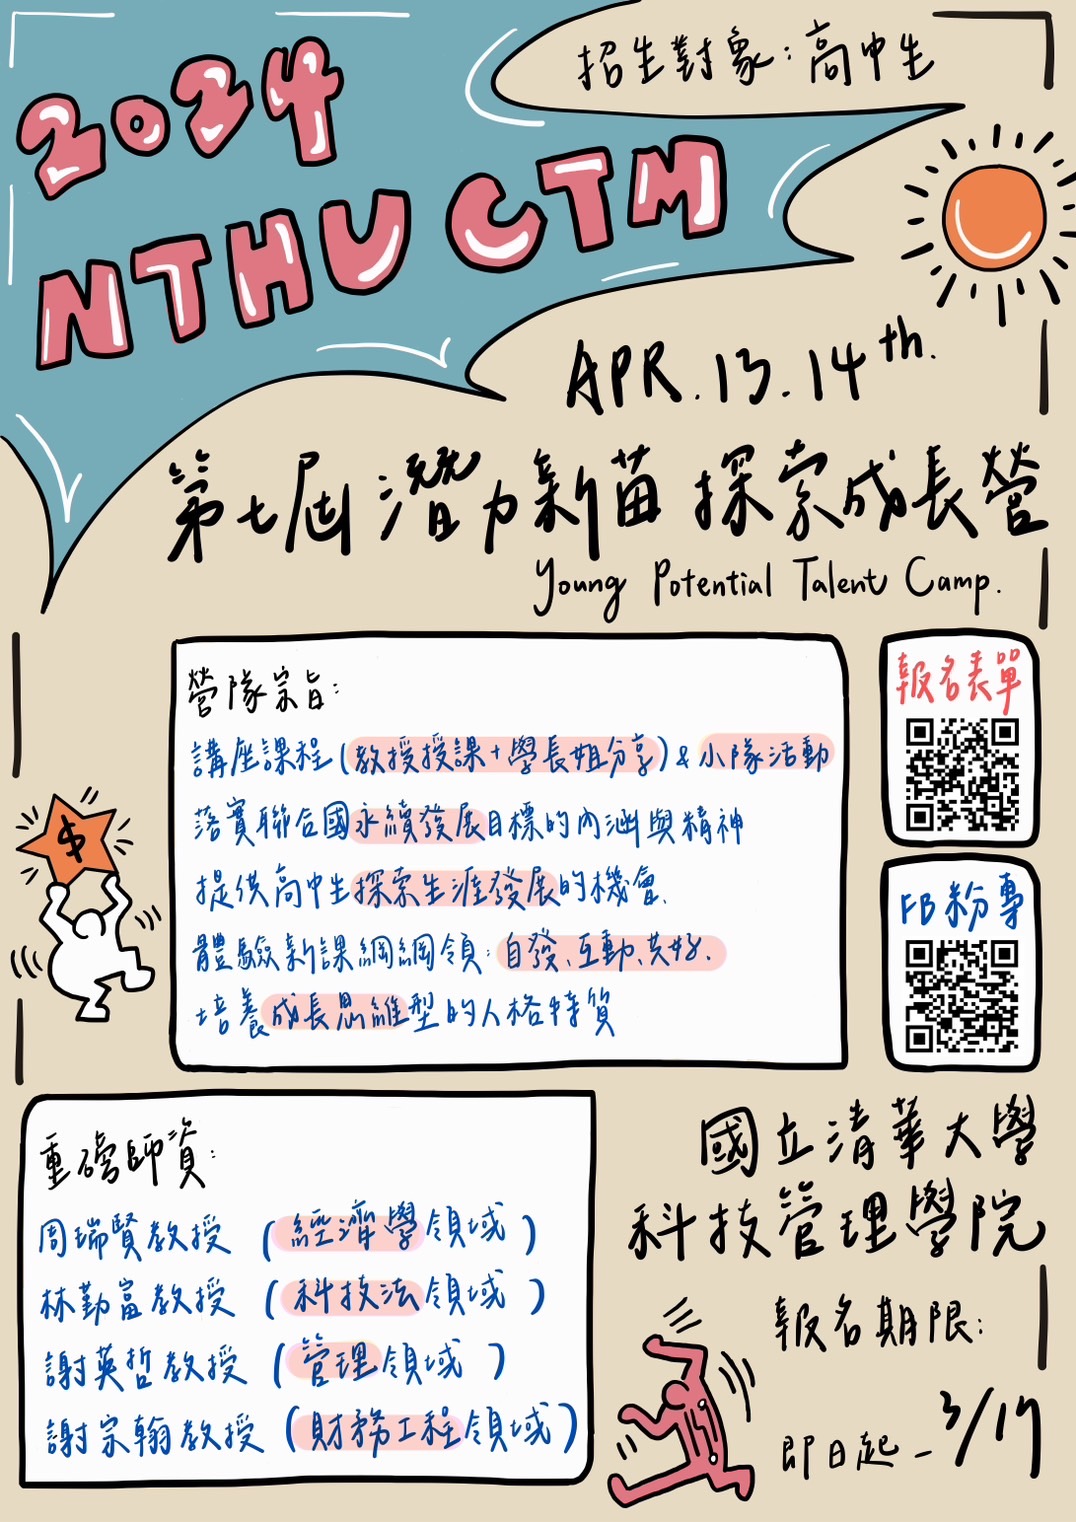 招生對象:高中生
2024
NTHU CTM
APR.13.14th.
第七屆潛力新苗探索成長營
Young Potential Talent Camp.
營隊宗旨:
講座課程(教授授課+學長姐分享)&小隊活動
落實聯合國永續發展目標的內涵與精神
提供高中生探索生涯發展的機會.
體驗新課綱綱領:自發、互動、共好.
培養成長思維型的人格特質
報名表單
FB粉專
$
重磅師資:
周瑞賢教授(經濟學領域)
林勤富教授(科技法領域)
謝英哲教授(管理領域)
謝宗翰教授(財務工程領域)
國立清華大學
科技管理學院
報名期限:
即日起-3/17